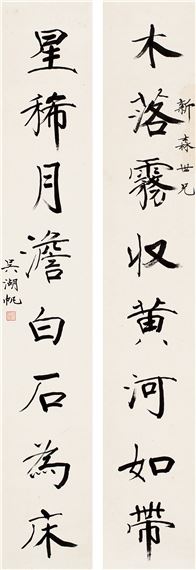 木落霧收黄河如帶
新森世兄
星稀月澹白石為床
吳湖帆